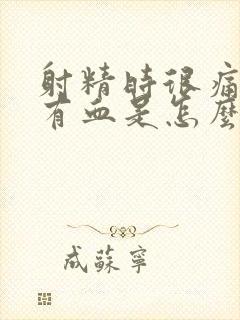 射精時很痛
有血是怎麼
成蘇寧